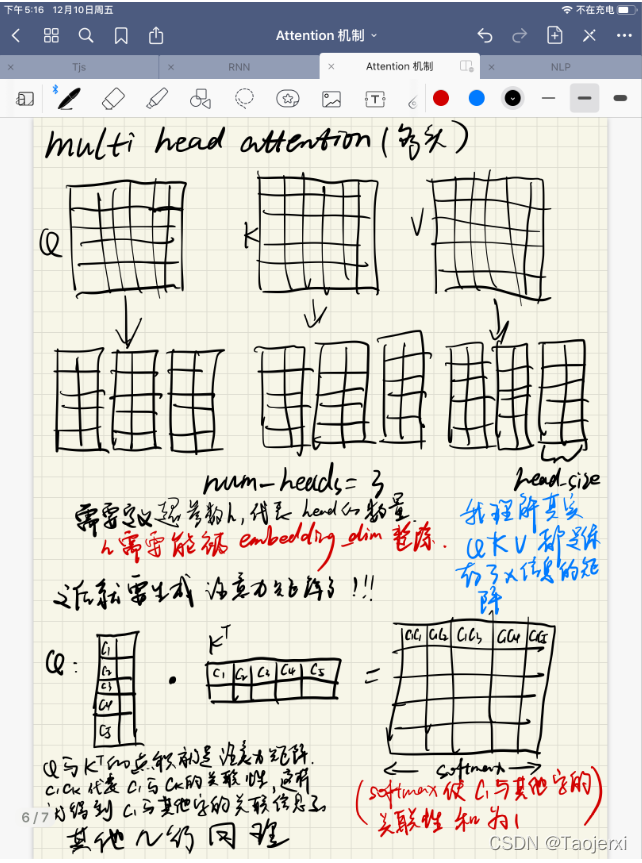 下午5:16 12月10日周五
不在充电
Attention 机制
Tjs
RNN
Attention 机制
NLP
multi head attention (多头)
Q
K
V
num-heads = 3
head-size
需要定义超参数h, 代表head的数量
h需要能被 embedding_dim 整除.
我理解其实
QKV都是保
存了x信息的矩
阵
之后就要生成 注意力矩阵了!!!
Q:
C1
C2
C3
C4
C5
·
K^T
C1 C2 C3 C4 C5
=
C1C1 C1C2 C1C3 C1C4 C1C5
softmax
Q与K^T的点积就是注意力矩阵.
C1CK代表C1与CK的关联性, 这样
就得到C1与其他字的关联信息了
其他 同理
(softmax使C1与其他字的
关联性和为1)
6 / 7
CSDN @Taojerxi